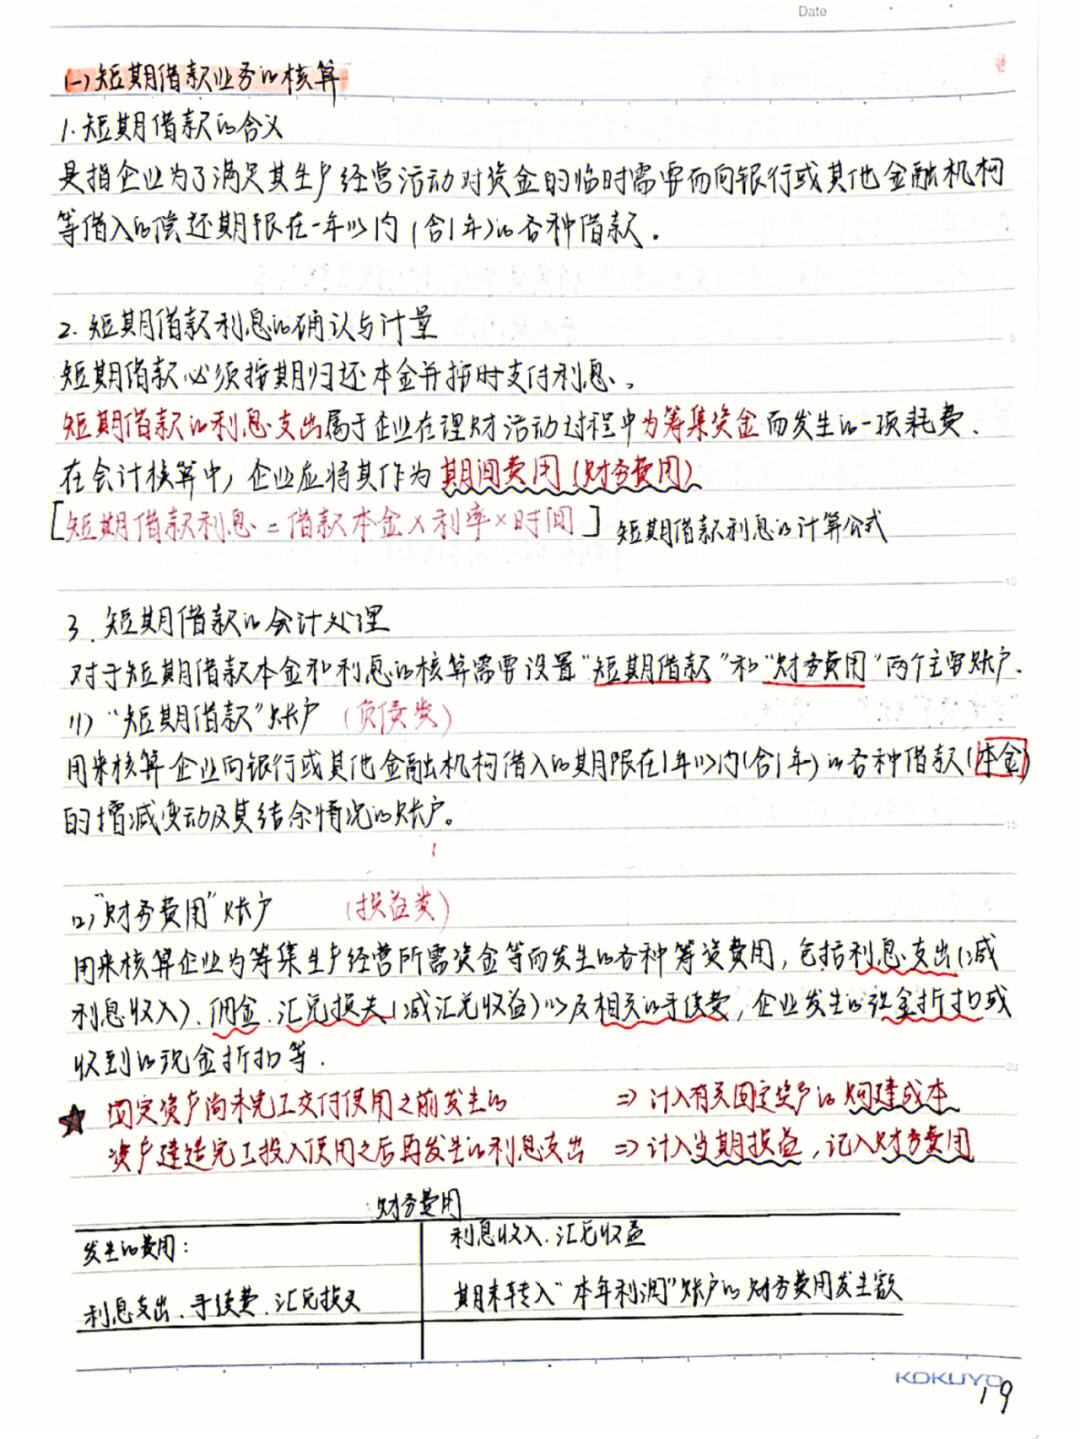 Date
(一)短期借款业务的核算
1.短期借款的含义
是指企业为了满足其生产经营活动对资金的临时需要而向银行或其他金融机构
等借入的偿还期限在一年以内(含1年)的各种借款.
2.短期借款利息的确认与计量
5
短期借款必须按期归还本金并按时支付利息。
短期借款的利息支出属于企业在理财活动过程中为筹集资金而发生的一项耗费.
在会计核算中,企业应将其作为期间费用(财务费用)
[短期借款利息=借款本金×利率×时间] 短期借款利息的计算公式
10
3.短期借款的会计处理
对于短期借款本金和利息的核算需要设置“短期借款”和“财务费用”两个主要账户.
(1)“短期借款”账户 (负债类)
用来核算企业向银行或其他金融机构借入的期限在1年以内(含1年)的各种借款(本金)
的增减变动及其结余情况的账户。
15
(2)“财务费用”账户 (损益类)
用来核算企业为筹集生产经营所需资金等而发生的各种筹资费用,包括利息支出(减
利息收入)、佣金、汇兑损失(减汇兑收益)以及相关的手续费,企业发生的现金折扣或
收到的现金折扣等.
20
★ 固定资产尚未完工交付使用之前发生的 ⇒计入有关固定资产的购建成本
资产建造完工投入使用之后再发生的利息支出 ⇒计入当期损益,记入财务费用
财务费用
发生的费用: 利息收入、汇兑收益
利息支出、手续费、汇兑损失 期末转入“本年利润”账户的财务费用发生额
KOKUYO
19